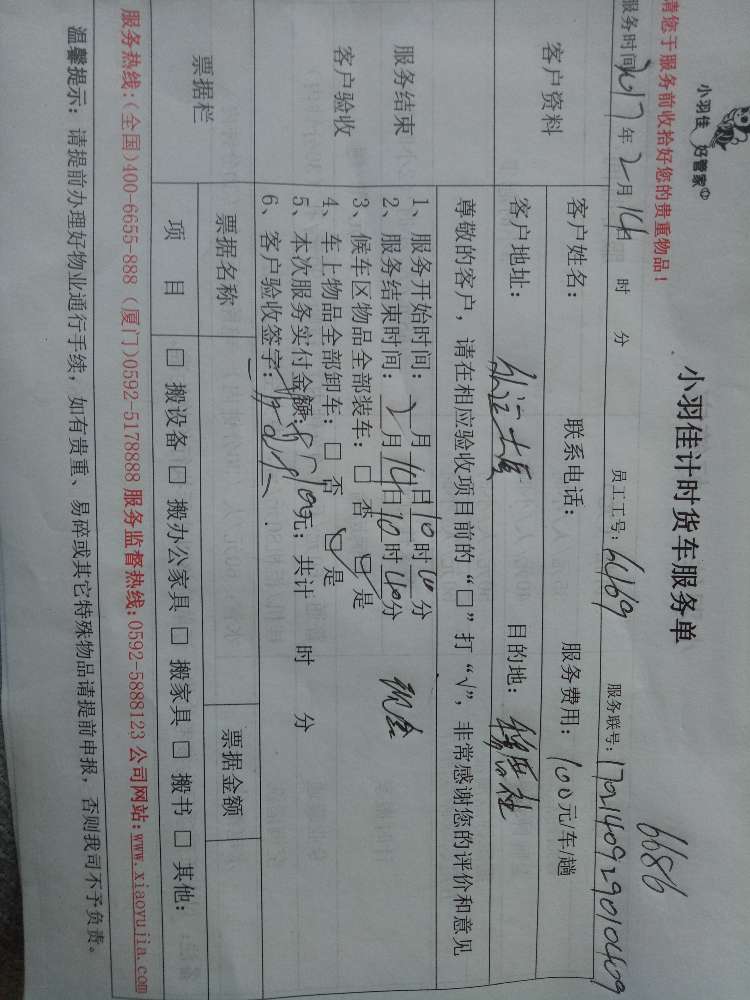 小羽佳 好管家
小羽佳计时货车服务单
6686
请您于服务前收拾好您的贵重物品!
服务时间2017年2月14日 时 分 员工工号: 服务联号:
客户资料
客户姓名: 联系电话: 服务费用: 100元/车/趟
客户地址: 目的地:
尊敬的客户,请在相应验收项目前的“□”打“√”,非常感谢您的评价和意见
服务结束
客户验收
1、服务开始时间: 月 日10时10分
2、服务结束时间:2月14日10时40分 现金
3、候车区物品全部装车:□ 否 ☑ 是
4、车上物品全部卸车:□ 否 ☑ 是
5、本次服务实付金额: 元;共计 时 分
6、客户验收签字:
票据栏
票据名称 票据金额
项 目 □ 搬设备 □ 搬办公家具 □ 搬家具 □ 搬书 □ 其他:
服务热线:(全国)400-6655-888 (厦门)0592-5178888 服务监督热线:0592-5888123 公司网站:www.xiaoyujia.com
温馨提示:请提前办理好物业通行手续,如有贵重、易碎或其它特殊物品请提前申报,否则我司不予负责。